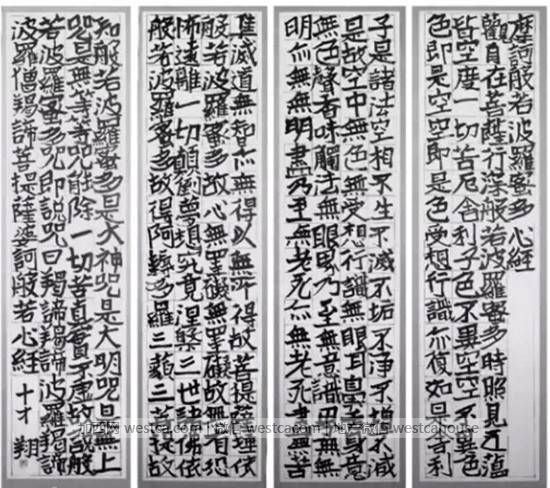 摩訶般若波羅蜜多心經
觀自在菩薩行深般若波羅蜜多時照見五蘊
皆空度一切苦厄舍利子色不異空空不異色
色即是空空即是色受想行識亦復如是舍利
子是諸法空相不生不滅不垢不淨不增不減
是故空中無色無受想行識無眼耳鼻舌身意
無色聲香味觸法無眼界乃至無意識界無無
明亦無無明盡乃至無老死亦無老死盡無苦
集滅道無智亦無得以無所得故菩提薩埵依
般若波羅蜜多故心無罣礙無罣礙故無有恐
怖遠離一切顛倒夢想究竟涅槃三世諸佛依
般若波羅蜜多故得阿耨多羅三藐三菩提故
知般若波羅蜜多是大神咒是大明咒是無上
咒是無等等咒能除一切苦真實不虛故說般
若波羅蜜多咒即說咒曰羯諦羯諦波羅羯諦
波羅僧羯諦菩提薩婆訶般若心經 十才 翔
加西网 westca.com | 微信 westcacom | 地产微信 westcahouse